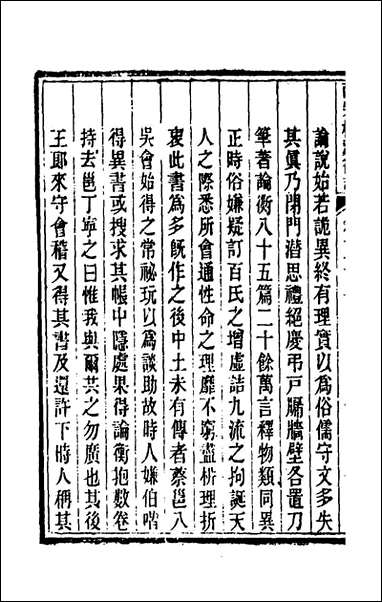 論說始若詭異終有理實以爲俗儒守文多失
其眞乃閉門潛思禮絕慶弔戸牖牆壁各置刀
筆著論衡八十五篇二十餘萬言釋物類同異
正時俗嫌疑訂百氏之增虛詰九流之拘誕天
人之際悉所會通性命之理靡不窮盡析理折
衷此書爲多旣作之後中土未有傳者蔡邕入
吳會始得之常祕玩以爲談助故時人嫌伯喈
得異書或搜求其帳中隱處果得論衡抱數卷
持去邕丁寧之曰惟我與爾共之勿廣也其後
王郞來守會稽又得其書及還許下時人稱其